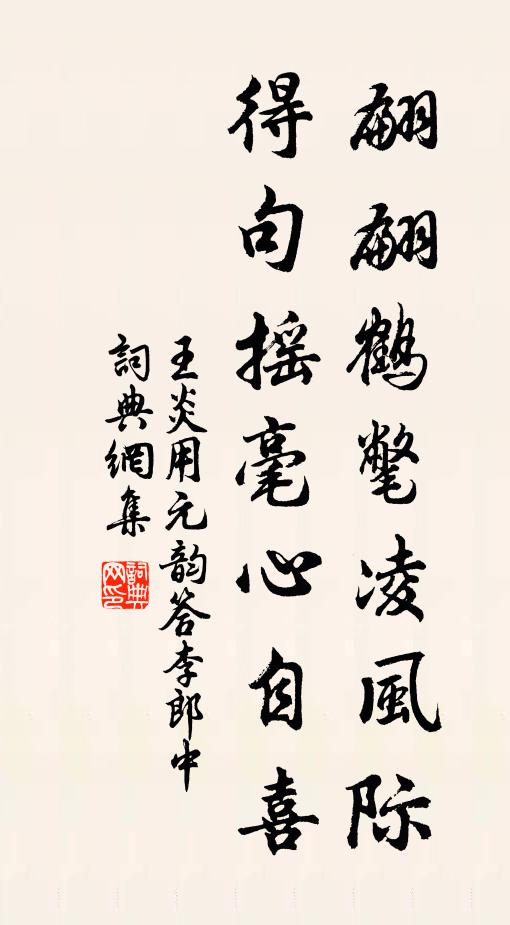 翩翩鶴氅凌風际
得句摇毫心自喜
王炎用元韵答李郎中
詞典網集
詞典网印